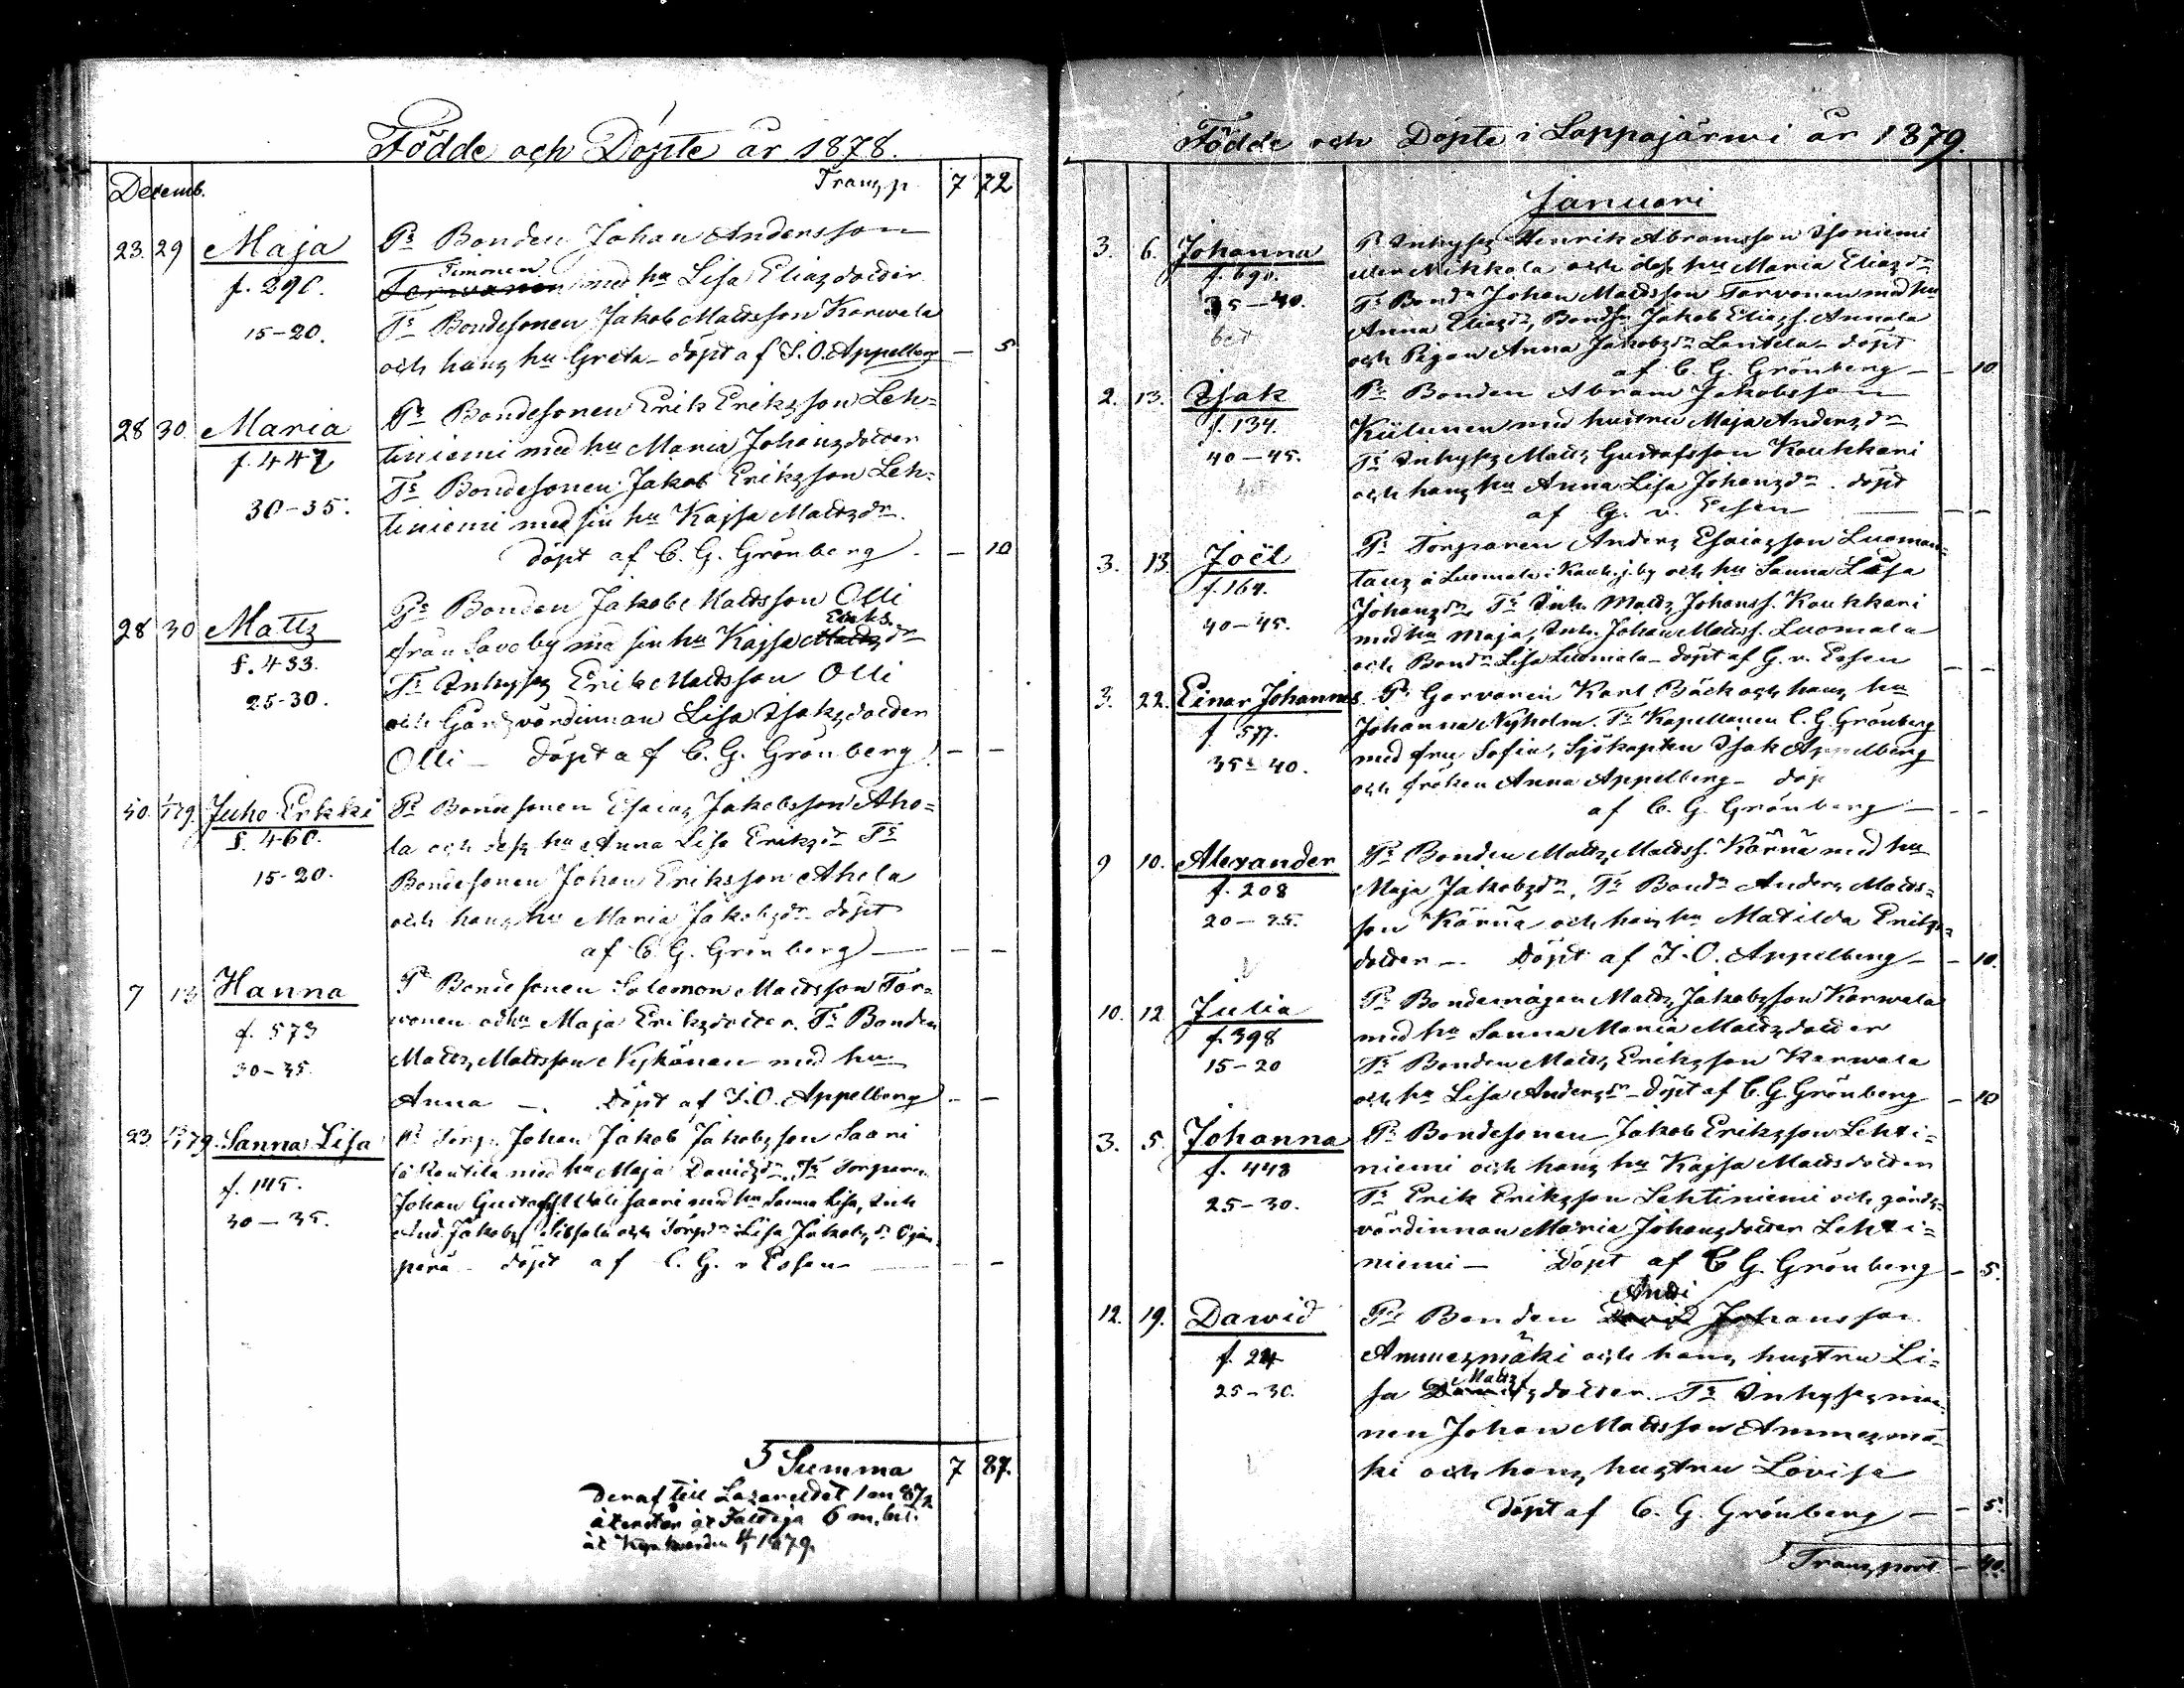 Födde och Döpte år 1878.
Decemb. Transp. 7 72
23. 29 Maja Ps Bonden Johan Andersson
Timonen
f. 290. Torwanen med hu Lisa Eliaz dotter
15-20. Ts Bondesonen Jakob Mattsson Karwala
och hanz hu Greta - döpt af I. O. Appelberg - 5
28 30 Maria Ps Bondesonen Erik Erikzson Leh=
f. 447 tiniemi med hu Maria Johanzdotter
Ts Bondesonen Jakob Erikzson Leh=
30-35. tiniemi med sin hu Kajsa Mattzdr
döpt af C. G. Grönberg - 10
28 30 Mattz Ps Bonden Jakob Mattsson Olli
Eriks
från Savo by med sin hu Kajsa Mattzdr
f. 433. Ts Inhysz Erik Mattsson Olli
25-30. och Gårdzvärdinnan Lisa Isakzdotter
Olli - döpt af C. G. Grönberg - -
30. 1/1 79. Juho Erkki Ps Bondesonen Esaiaz Jakobsson Aho=
f. 460. la och desz hu Anna Lisa Erikzdr Ts
15-20. Bondesonen Johan Eriksson Ahola
och hanz hu Maria Jakobzdr döpt
af C. G. Grönberg - - -
7 13 Hanna Ps Bondesonen Salomon Mattsson Tor=
f. 573 wonen och hu Maja Erikzdotter. Ts Bonden
30-35. Mattz Mattsson Nykänen med hu
Anna -. Döpt af I. O. Appelberg - -
23. 79. Sanna Lisa Ps Torp. Johan Jakob Jakobzson Saari
f. 145. med hu Maja Davidzdr. Ts Torparen
30-35. Johan Gustafss saari med hu Sanna Lisa, Inh
And. Jakobzs och Torpdr Lisa Jakobzdr Ojan
perä - döpt af C. G. v Essen - -
Summa 7 87.
Deraf till Lazarettet 1 m 87 p
återstår åt Fattiga 6 m. bet.
åt 1879.
Födde och Döpte i Lappajärwi år 1879.
Januari
3. 6. Johanna Ps Inhysz Henrik Abramsson Isoniemi
f. 690. eller Nikkola och desz hu Maria Eliazdr
35-40. Ts Bondn Johan Mattsson Torvonen med hu
bet Anna Eliazdr, Bonds. Jakob Eliazs. Annala
och Pigan Anna Jakobzdr Lantela - döpt
af C. G. Grönberg - - 10
2. 13. Isak Ps Bonden Abram Jakobsson
f. 134. Kiilunen med hustru Maja Anderzdr
40-45. Ts Inhysz Mattz Gustafsson Kaukkari
och hanz hu Anna Lisa Johanzdr. döpt
af G. v. Essen - -
3. 13. Joël Ps Torparen Anderz Esaiazson Luoman=
f. 164. tauz å Luomala i Kauh.j. by och hu Sanna Lisa
Johanzdr. Ts Inh. Mattz Johanss. Kaukkari
40-45. med hu Maja, Inh. Johan Mattss. Luomala
och Bondr Lisa Luomala - döpt af G. v. Essen - -
3. 22. Einar Johannes Ps Garvaren Karl Bäck och hanz hu
f. 577. Johanna Nyholm. Ts Kapellanen C. G. Grönberg
35-40. med fru Sofia, Sjökapten Isak Appelberg
och fröken Anna Appelberg - döp
af C. G. Grönberg - - -
9 10. Alexander Ps Bonden Mattz Mattss. Kärnä med hu
f. 208 Maja Jakobzdr, Ts Bondn Anders Matts=
20-25. son Kärnä och hanz hu Matilda Erikz=
dotter -. Döpt af I. O. Appelberg - - 10.
10. 12 Julia Ps Bondemågen Mattz Jakobzson Karwala
f. 398 med hu Sanna Maria Mattzdotter
15-20 Ts Bonden Mattz Erikzson Karwala
och hu Lisa Anderzdr - döpt af C. G. Grönberg - 10
3. 5. Johanna Ps Bondesonen Jakob Erikzson Lehti=
f. 448 niemi och hanz hu Kajsa Mattsdotter
25-30. Ts Erik Erikzson Lehtiniemi och gårdz=
värdinnan Maria Johanzdotter Lehti=
niemi - Döpt af C G. Grönberg - 5.
Antti
12. 19. Dawid Ps Bonden David Johansson
f. 24 Ammezmäki och hanz hustru Li=
Mattz
25-30. sa dotter. Ts Inhysezman=
nen Johan Mattsson Ammezmä=
ki och hanz hustru Lovisa
döpt af C. G. Grönberg - - 5.
Transport - 40.